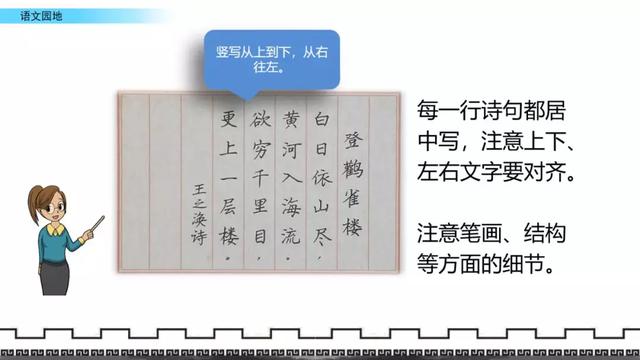 语文园地
竖写从上到下，从右
往左。
登鹳雀楼
白日依山尽，
黄河入海流。
欲穷千里目，
更上一层楼。
王之涣诗
每一行诗句都居
中写，注意上下、
左右文字要对齐。
注意笔画、结构
等方面的细节。